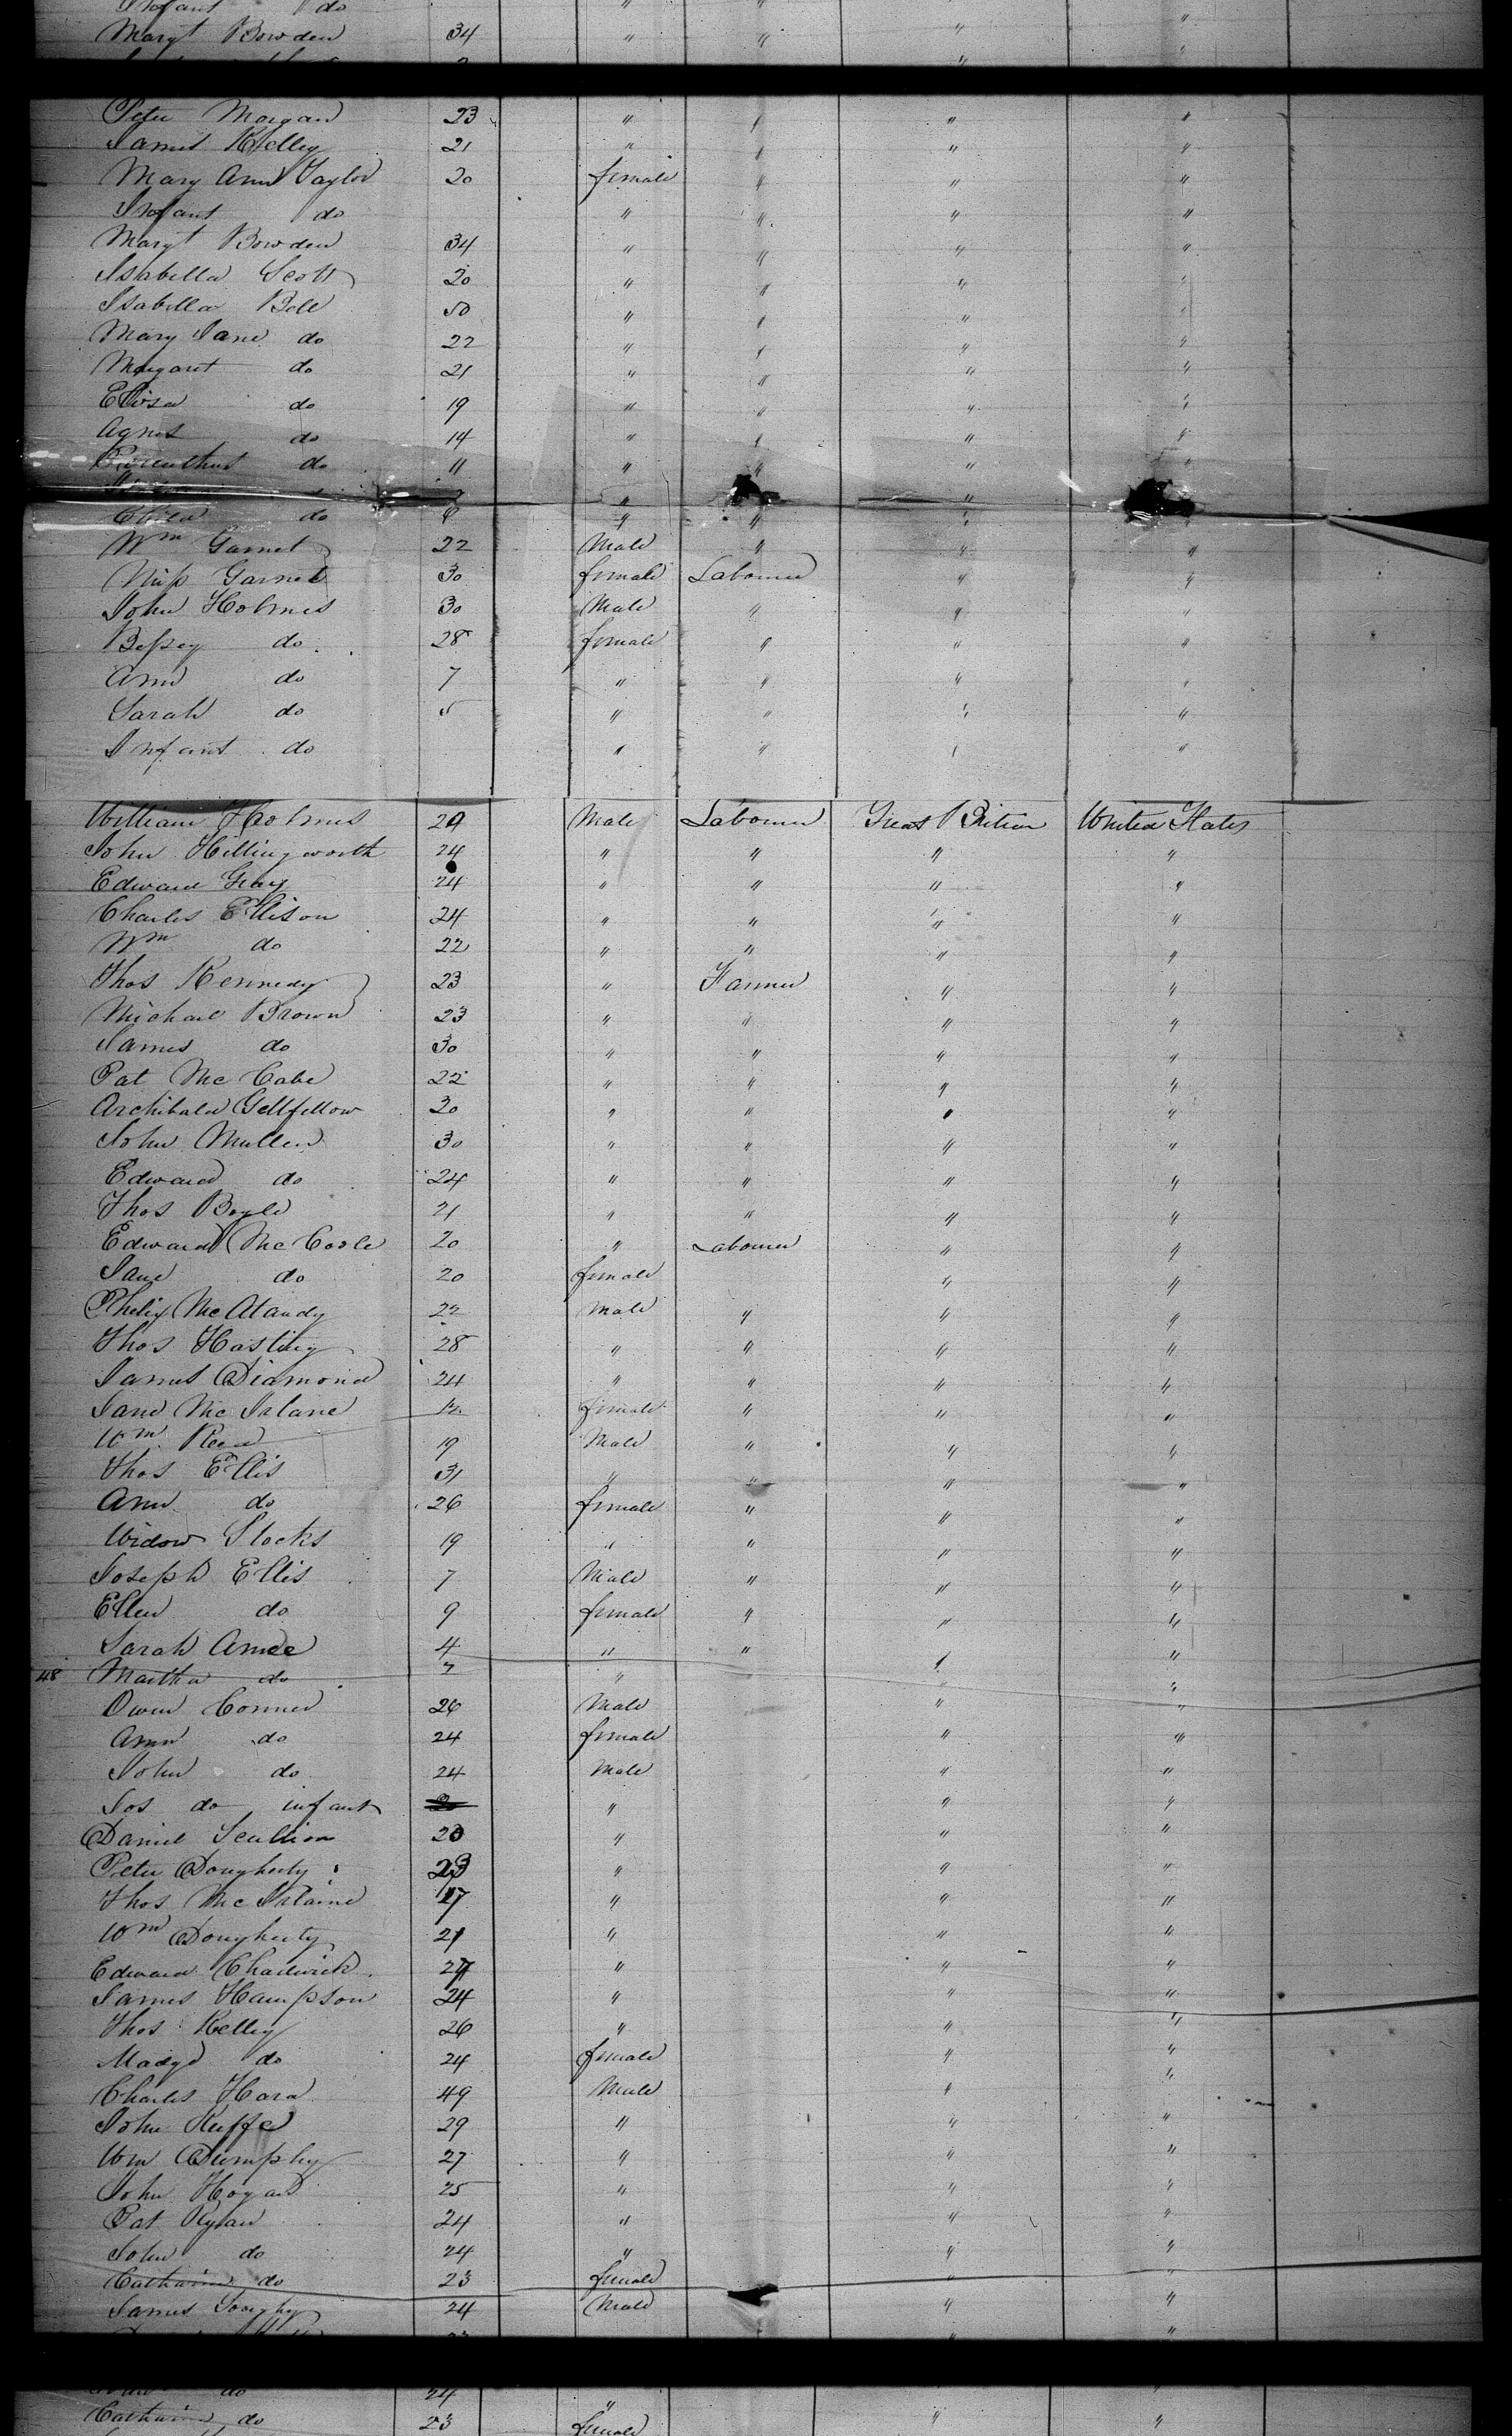 Infant do " " "
Margt Bowden 34 " " " "
Peter Morgan 23 " " " "
James Kelley 21 " " " "
Mary Ann Taylor 20 female " " "
Infant do " " " "
Margt Bowden 34 " " " "
Isabella Scott 20 " " " "
Isabella Bell 50 " " " "
Mary Jane do 22 " " " "
Margaret do 21 " " " "
Eliza do 19 " " " "
Agnes do 14 " " " "
do 11 " " " "
" "
do " " "
Wm Garnet 22 Male " " "
Miss Garnet 30 female Labourer " "
John Holmes 30 Male " " "
Bessey do 28 female " " "
Ann do 7 " " " "
Sarah do 5 " " " "
Infant do " " " "
William Holmes 29 Male Labourer Great Britian United States
John Hillingworth 24 " " " "
Edward Gray 24 " " " "
Charles Ellison 24 " " " "
Wm do 22 " " " "
Thos Kennedy 23 " Farmer " "
Michael Brown 23 " " " "
James do 30 " " " "
Pat McCabe 22 " " " "
Archibald Gellfellow 20 " " " "
John Mullen 30 " " " "
Edward do 24 " " " "
Thos Boyle 21 " " " "
Edward McCoole 20 " Labourer " "
Jane do 20 female " "
22 Male " " "
Thos Hasting 28 " " " "
James Diamond 24 " " " "
Jane McIlane 12 female " " "
Wm Reed 19 Male " " "
Thos Ellis 31 " " " "
Ann do 26 female " " "
Widow Stocks 19 " " " "
Joseph Ellis 7 Male " " "
Ellen do 9 female " " "
Sarah Amee 4 " " " "
48 Martha do 7 " " "
Owen Conner 26 Male " "
Ann do 24 female " "
John do 24 Male " "
Jos do infant " " "
Daniel Scullion 20 " " "
Peter Dougherty 23 " " "
Thos McIlaine 17 " " "
Wm Dougherty 21 " " "
Edward Chadwick 27 " " "
James Hampson 24 " " "
Thos Kelley 26 " " "
Madgd do 24 female " "
Charles Hara 49 Male " "
John Keffe 29 " " "
Wm Dumphy 27 " " "
John Hogan 25 " " "
Pat Ryan 24 " " "
John do 24 " " "
Catharine do 23 female " "
James 24 Male " "
do 24 " " "
Catharine do 23 female " "